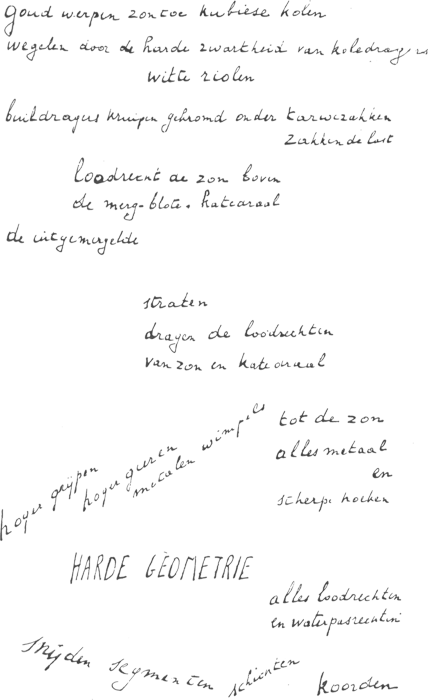 Goud werpen zontoe kubiese kolen
wegelen door de harde zwartheid van koledragers
witte riolen
buildragers kruipen gekromd onder tarwezakken
zakkende last
loodrecht de zon boven
de merg-blote. katedraal
de uitgemergelde
straten
dragen de loodrechten
van zon en katedraal
hoger grijpen
hoger gieren
metalen wimpels
tot de zon
alles metaal
en
scherpe hoeken
HARDE GEOMETRIE
alles loodrechten
en waterpasrechten
snijden segmenten schichten koorden